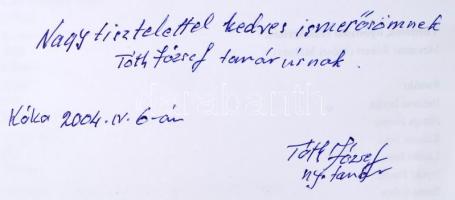 Nagy tisztelettel kedves ismerősömnek
Tóth József tanárúrnak.
Kóka 2004. IV. 6-án
Tóth József
ny. tanár